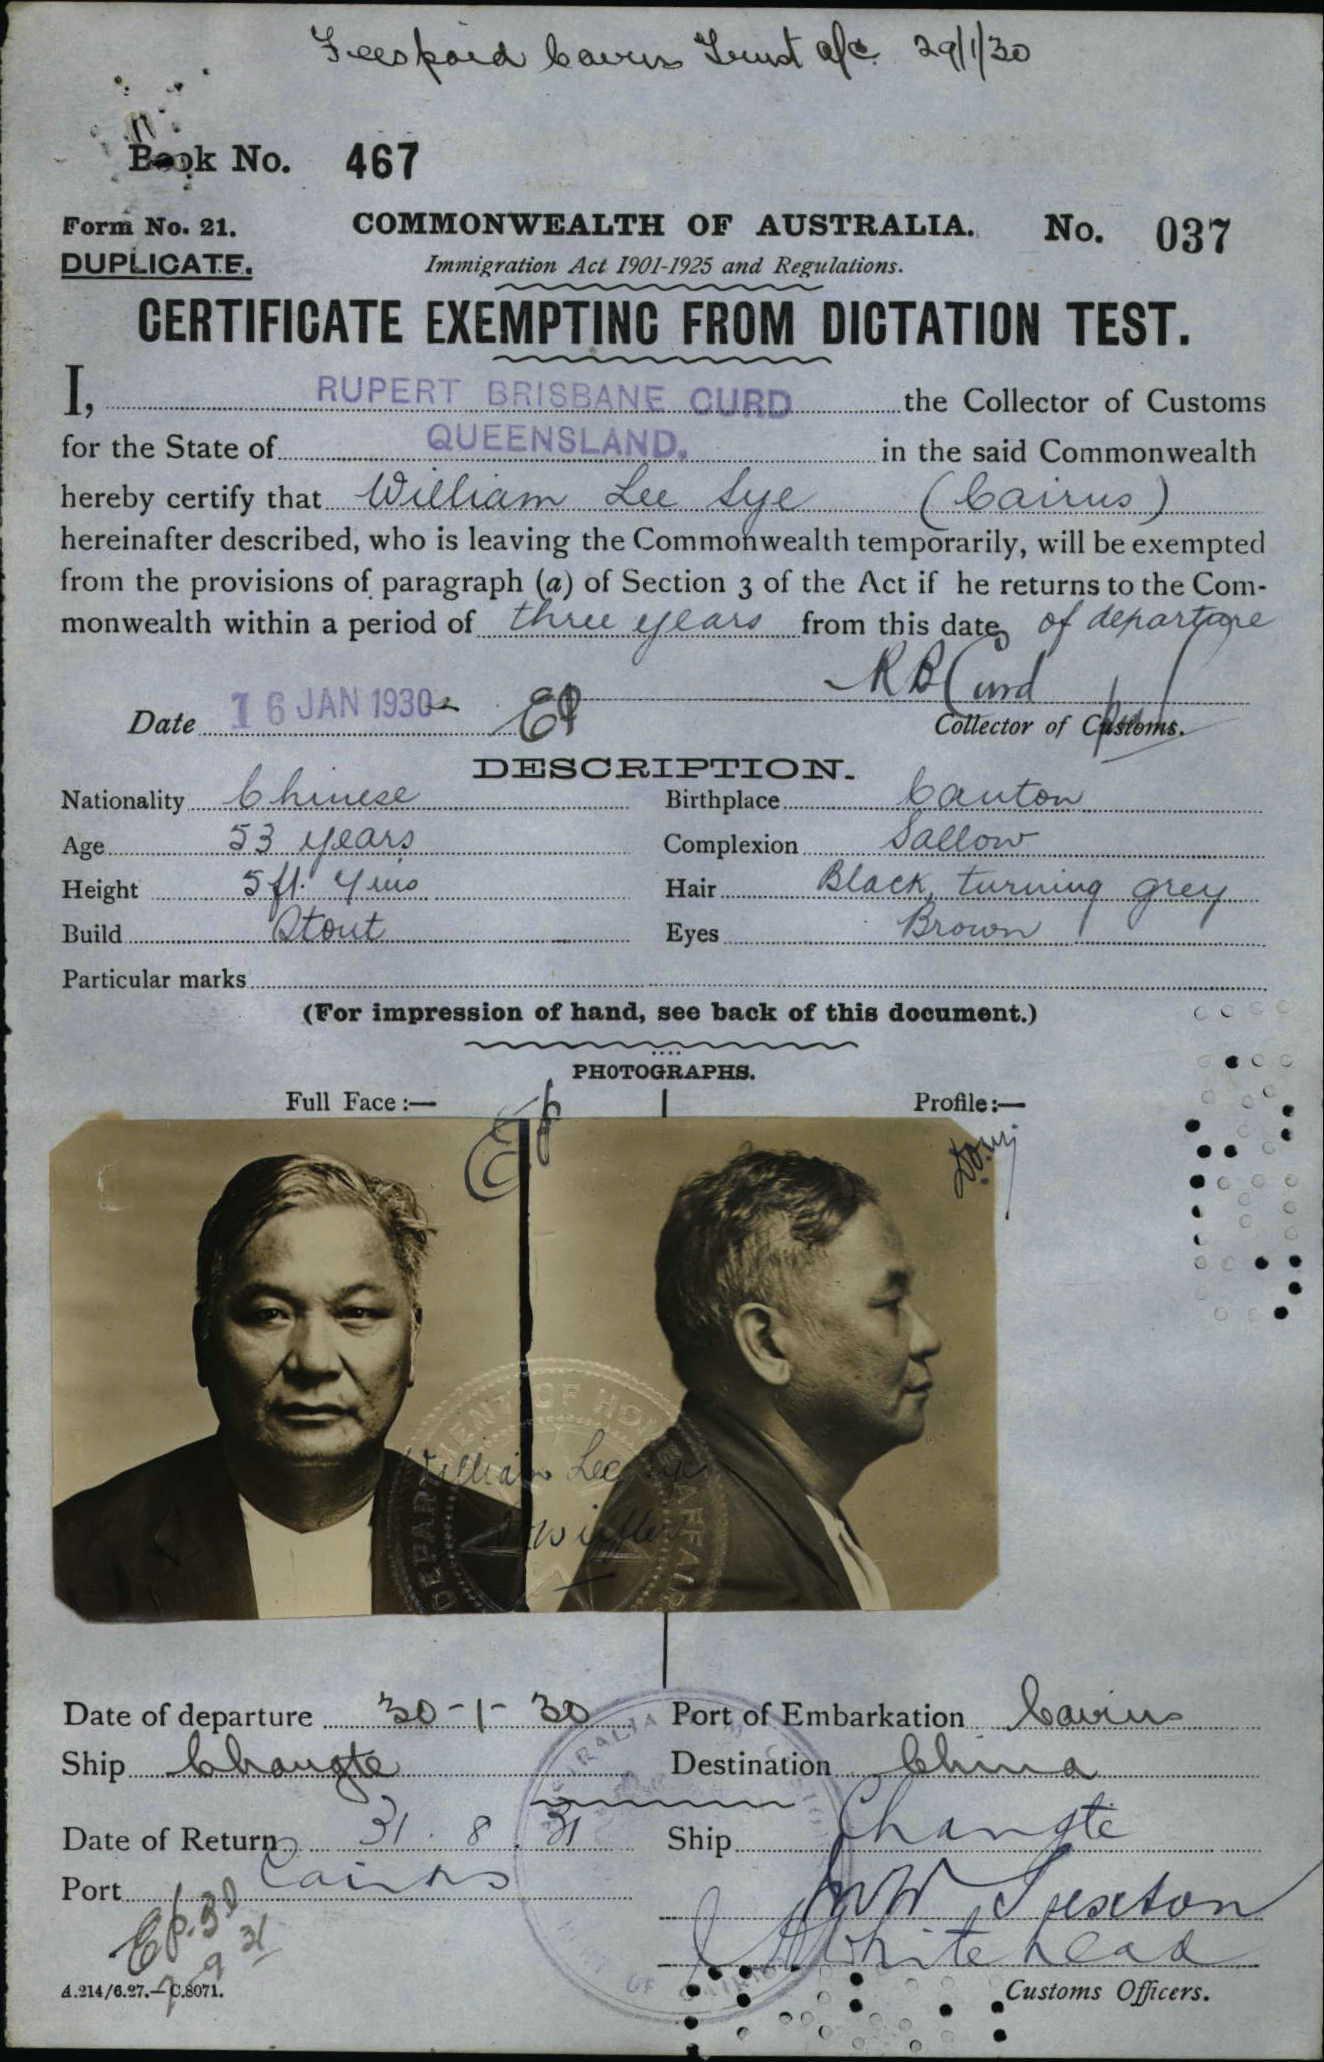 Fees paid Cairns Trust a/c 29/1/30
Book No. 467
Form No. 21. COMMONWEALTH OF AUSTRALIA. No. 037
DUPLICATE. Immigration Act 1901-1925 and Regulations.
CERTIFICATE EXEMPTING FROM DICTATION TEST.
I, RUPERT BRISBANE CURD the Collector of Customs
for the State of QUEENSLAND. in the said Commonwealth
hereby certify that William Lee Sye (Cairns)
hereinafter described, who is leaving the Commonwealth temporarily, will be exempted
from the provisions of paragraph (a) of Section 3 of the Act if he returns to the Com-
monwealth within a period of three years from this date of departure
R B Curd
Date 16 JAN 1930 Collector of Customs.
DESCRIPTION.
Nationality Chinese Birthplace Canton
Age 53 years Complexion Sallow
Height 5 ft. 4 ins Hair Black, turning grey
Build Stout Eyes Brown
Particular marks
(For impression of hand, see back of this document.)
PHOTOGRAPHS.
Full Face:— Profile:—
DEPARTMENT OF HOME AFFAIRS
William Lee Sye
Date of departure 30-1-30 Port of Embarkation Cairns
Ship Changte Destination China
Date of Return 31.8.31 Ship Changte
Port Cairns
Whitehead
A.214/6.27.—C.8071. Customs Officers.